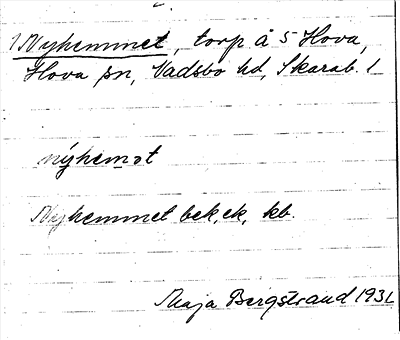 1 Nyhemmet, torp å 5 Hova,
Hova sn, Vadsbo hd, Skarab. l
nýhemət
Nyhemmet bek, ek, kb.
Maja Bergstrand 1931